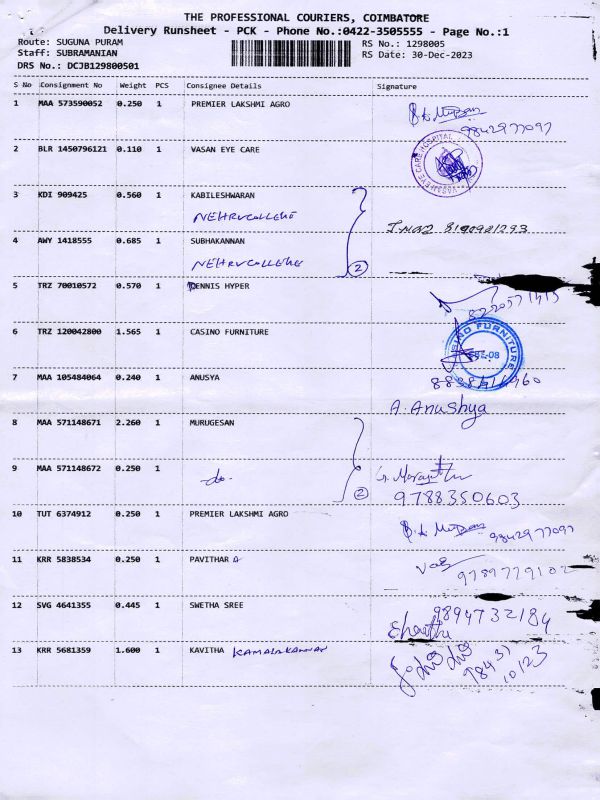 THE PROFESSIONAL COURIERS, COIMBATORE
Delivery Runsheet - PCK - Phone No.:0422-3505555 - Page No.:1
Route: SUGUNA PURAM
RS No.: 1298005
Staff: SUBRAMANIAN
RS Date: 30-Dec-2023
DRS No.: DCJB129800501
S No Consignment No Weight PCS Consignee Details Signature
1 MAA 573590052 0.250 1 PREMIER LAKSHMI AGRO
9842977097
2 BLR 1450796121 0.110 1 VASAN EYE CARE
VASAN EYE CARE HOSPITAL
3 KDI 909425 0.560 1 KABILESHWARAN
NEHRU COLLEGE
4 AWY 1418555 0.685 1 SUBHAKANNAN
NEHRU COLLEGE
2
5 TRZ 70010572 0.570 1 DENNIS HYPER
6 TRZ 120042800 1.565 1 CASINO FURNITURE
FURNITURE
7 MAA 105484064 0.240 1 ANUSYA
A. Anushya
8 MAA 571148671 2.260 1 MURUGESAN
9 MAA 571148672 0.250 1
-do-
2
9788350603
10 TUT 6374912 0.250 1 PREMIER LAKSHMI AGRO
9842977097
11 KRR 5838534 0.250 1 PAVITHRA
9789779102
12 SVG 4641355 0.445 1 SWETHA SREE
9894732184
13 KRR 5681359 1.600 1 KAVITHA KAMALAKANNAN
98431
10123